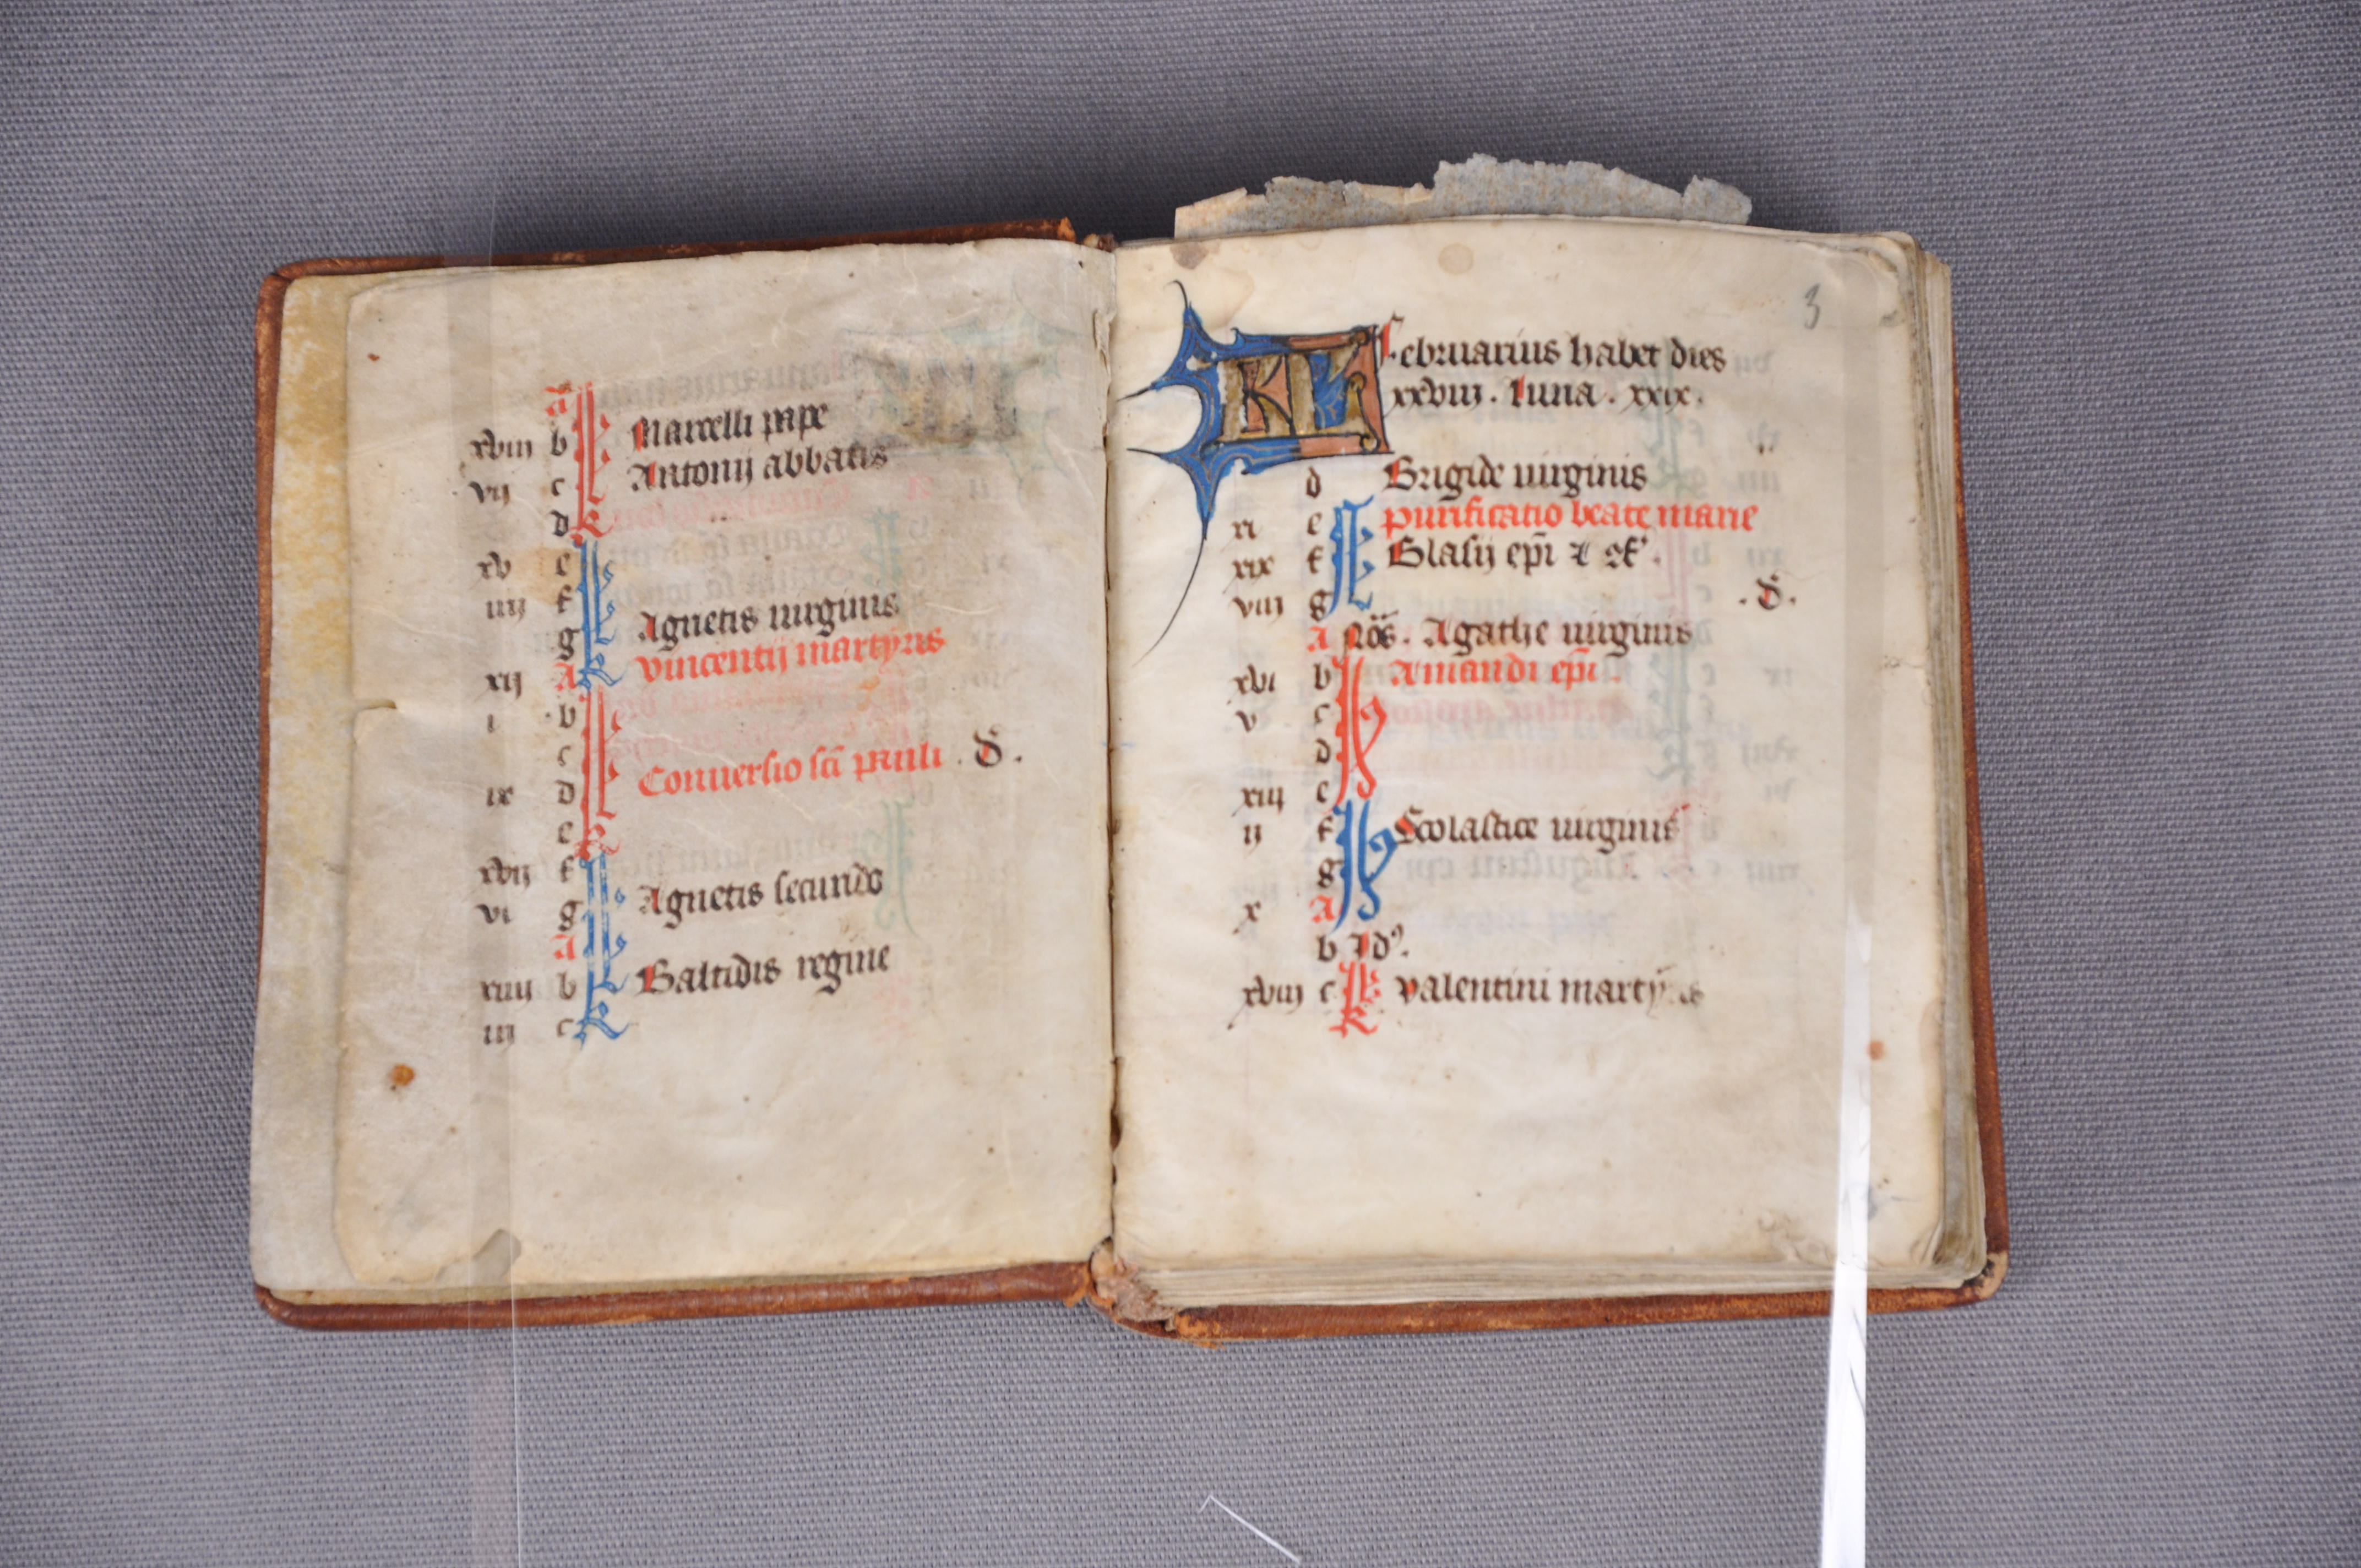 A
xviii b Marcelli pape
vij c Antonij abbatis
d k
xv e
iiij f
g Agnetis uirginis
xij A k vincentij martyris
i b
c
ix d Conuersio sci pauli . D.
e k
xvij f
vi g Agnetis secundo
A
xiiij b Baltidis regine
iij c k
3
KL Februarius habet dies
xxviij . luna . xxix.
d Brigide uirginis
xi e purificatio beate marie
xix f Blasij epi
viij g . D.
A Nōs . Agathe uirginis
xvi b Amandi epi .
v c
d
xiij e
ij f Scolastice uirginis
g
x A
b Id9.
xviij c k valentini martyris